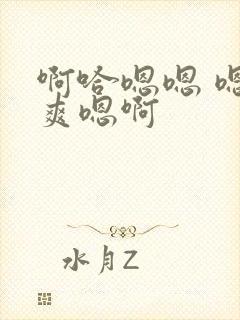 啊哈嗯嗯 嗯
爽嗯啊
水月Z